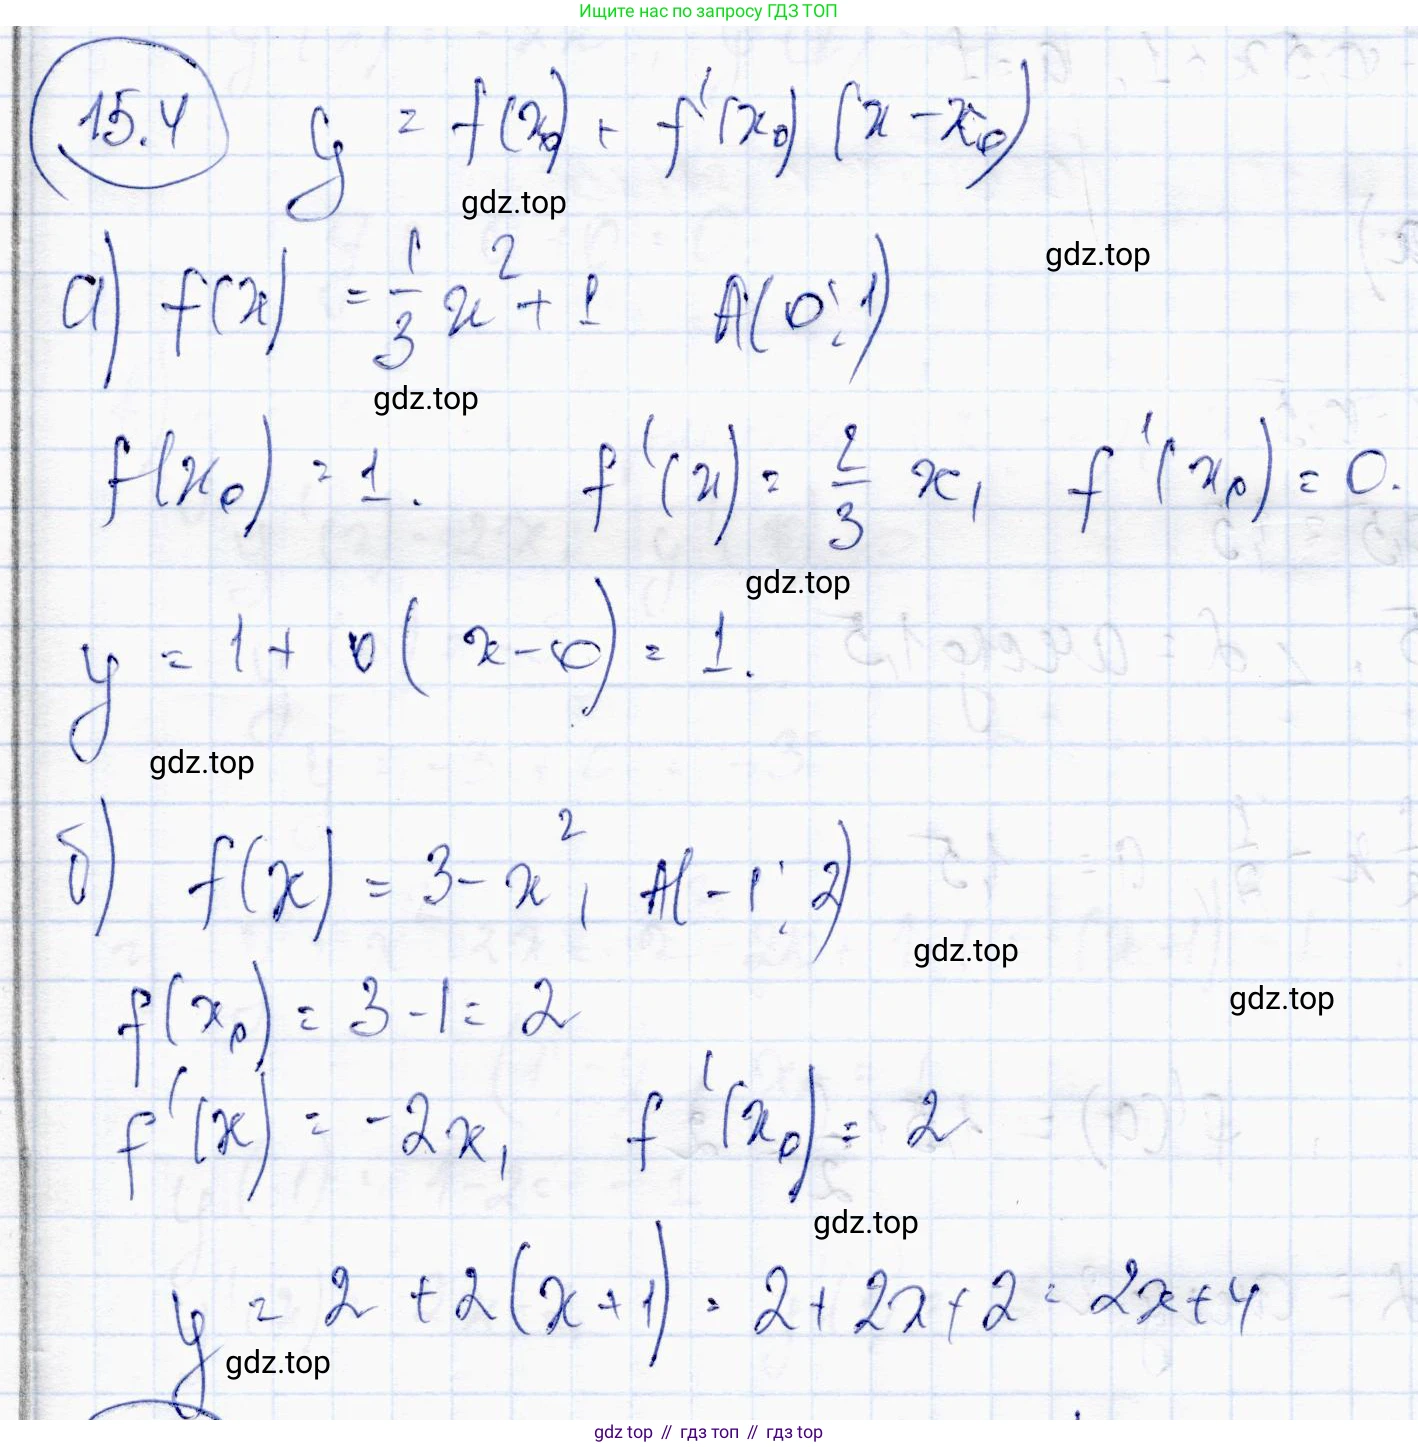 Ищите нас по запросу ГДЗ ТОП
15.4 y = f(x₀) + f'(x₀) (x - x₀)
gdz.top
gdz.top
а) f(x) = 1/3 x² + 1 A(0; 1)
gdz.top
f(x₀) = 1. f'(x) = 2/3 x, f'(x₀) = 0.
gdz.top
y = 1 + 0(x - 0) = 1.
gdz.top
б) f(x) = 3 - x², A(-1; 2)
gdz.top
gdz.top
f(x₀) = 3 - 1 = 2
f'(x) = -2x, f'(x₀) = 2
gdz.top
y = 2 + 2(x + 1) = 2 + 2x + 2 = 2x + 4
gdz.top
gdz top // гдз топ // гдз top